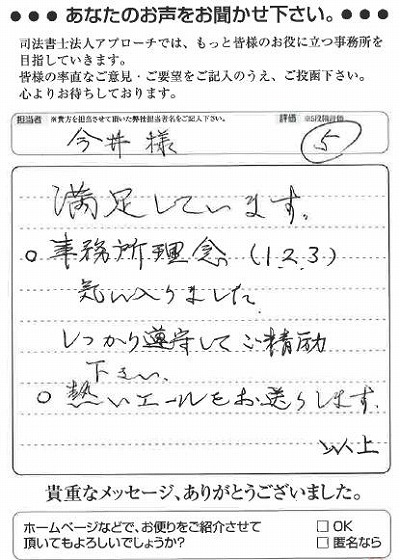 ●●●あなたのお声をお聞かせ下さい。●●●
司法書士法人アプローチでは、もっと皆様のお役に立つ事務所を
目指していきます。
皆様の率直なご意見・ご要望をご記入のうえ、ご投函下さい。
心よりお待ちしております。
担当者 ※貴方を担当させて頂いた弊社担当者名をご記入下さい。 評価 ※5段階評価
今井様 5
満足しています。
○事務所理念(1.2.3)
気に入りました
しっかり遵守してご精励
下さい、
○熱いエールをお送りします。
以上
貴重なメッセージ、ありがとうございました。
ホームページなどで、お便りをご紹介させて □OK
頂いてもよろしいでしょうか? □匿名なら